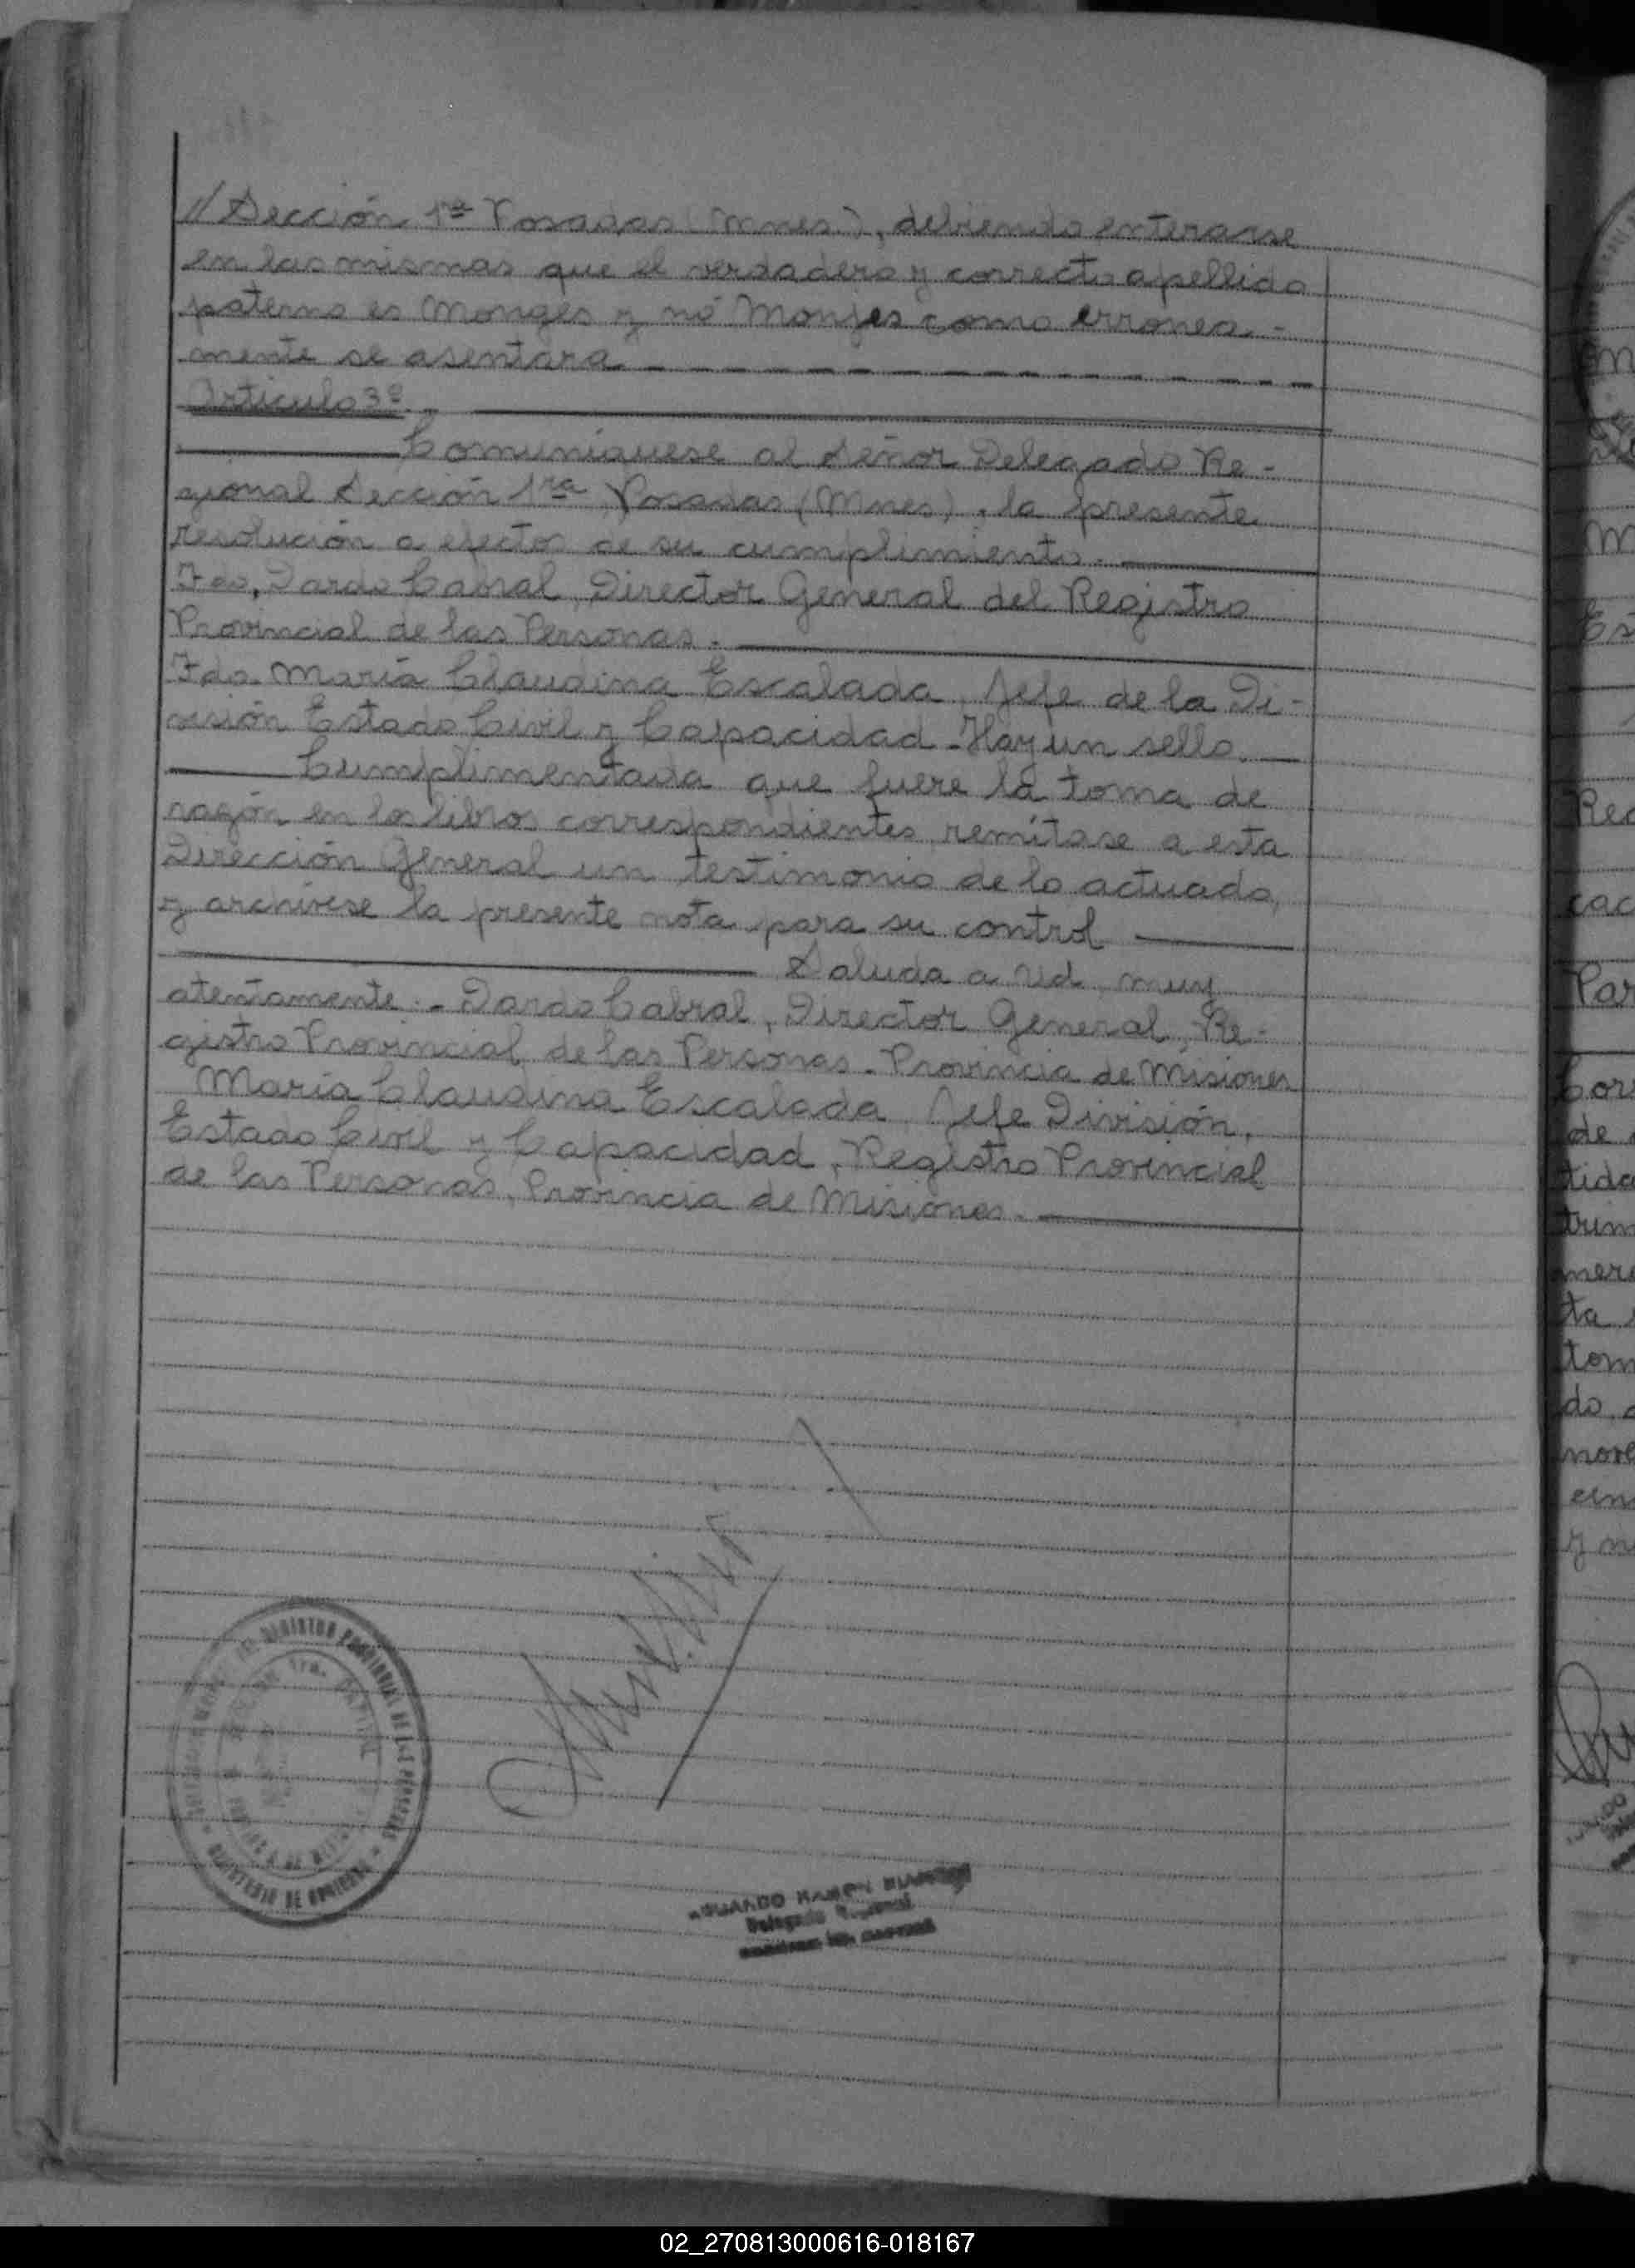 // Sección 1ra Posadas (Mnes.), debiendo enterarse
en las mismas que el verdadero y correcto apellido
paterno es Monges y no Monjes como erronea.-
mente se asentara
Artículo 3º.-
Comuníquese al Señor Delegado Re-
gional Sección 1ra Posadas (Mnes), la presente
resolución a efectos de su cumplimiento.
Fdo. Dardo Cabral, Director General del Registro
Provincial de las Personas.
Fdo. María Claudina Escalada, Jefe de la Di-
visión Estado Civil y Capacidad - Hay un sello.
Cumplimentada que fuere la toma de
razón en los libros correspondientes, remítase a esta
Dirección General un testimonio de lo actuado,
y archívese la presente nota para su control
Saluda a Ud. muy
atentamente. - Dardo Cabral, Director General, Re-
gistro Provincial de las Personas - Provincia de Misiones
María Claudina Escalada, Jefe División,
Estado Civil y Capacidad, Registro Provincial
de las Personas, Provincia de Misiones.
REGISTRO PROVINCIAL DE LAS PERSONAS
1ra.
MINISTERIO DE GOBIERNO
RAMON
Delegado Regional
02_270813000616-018167